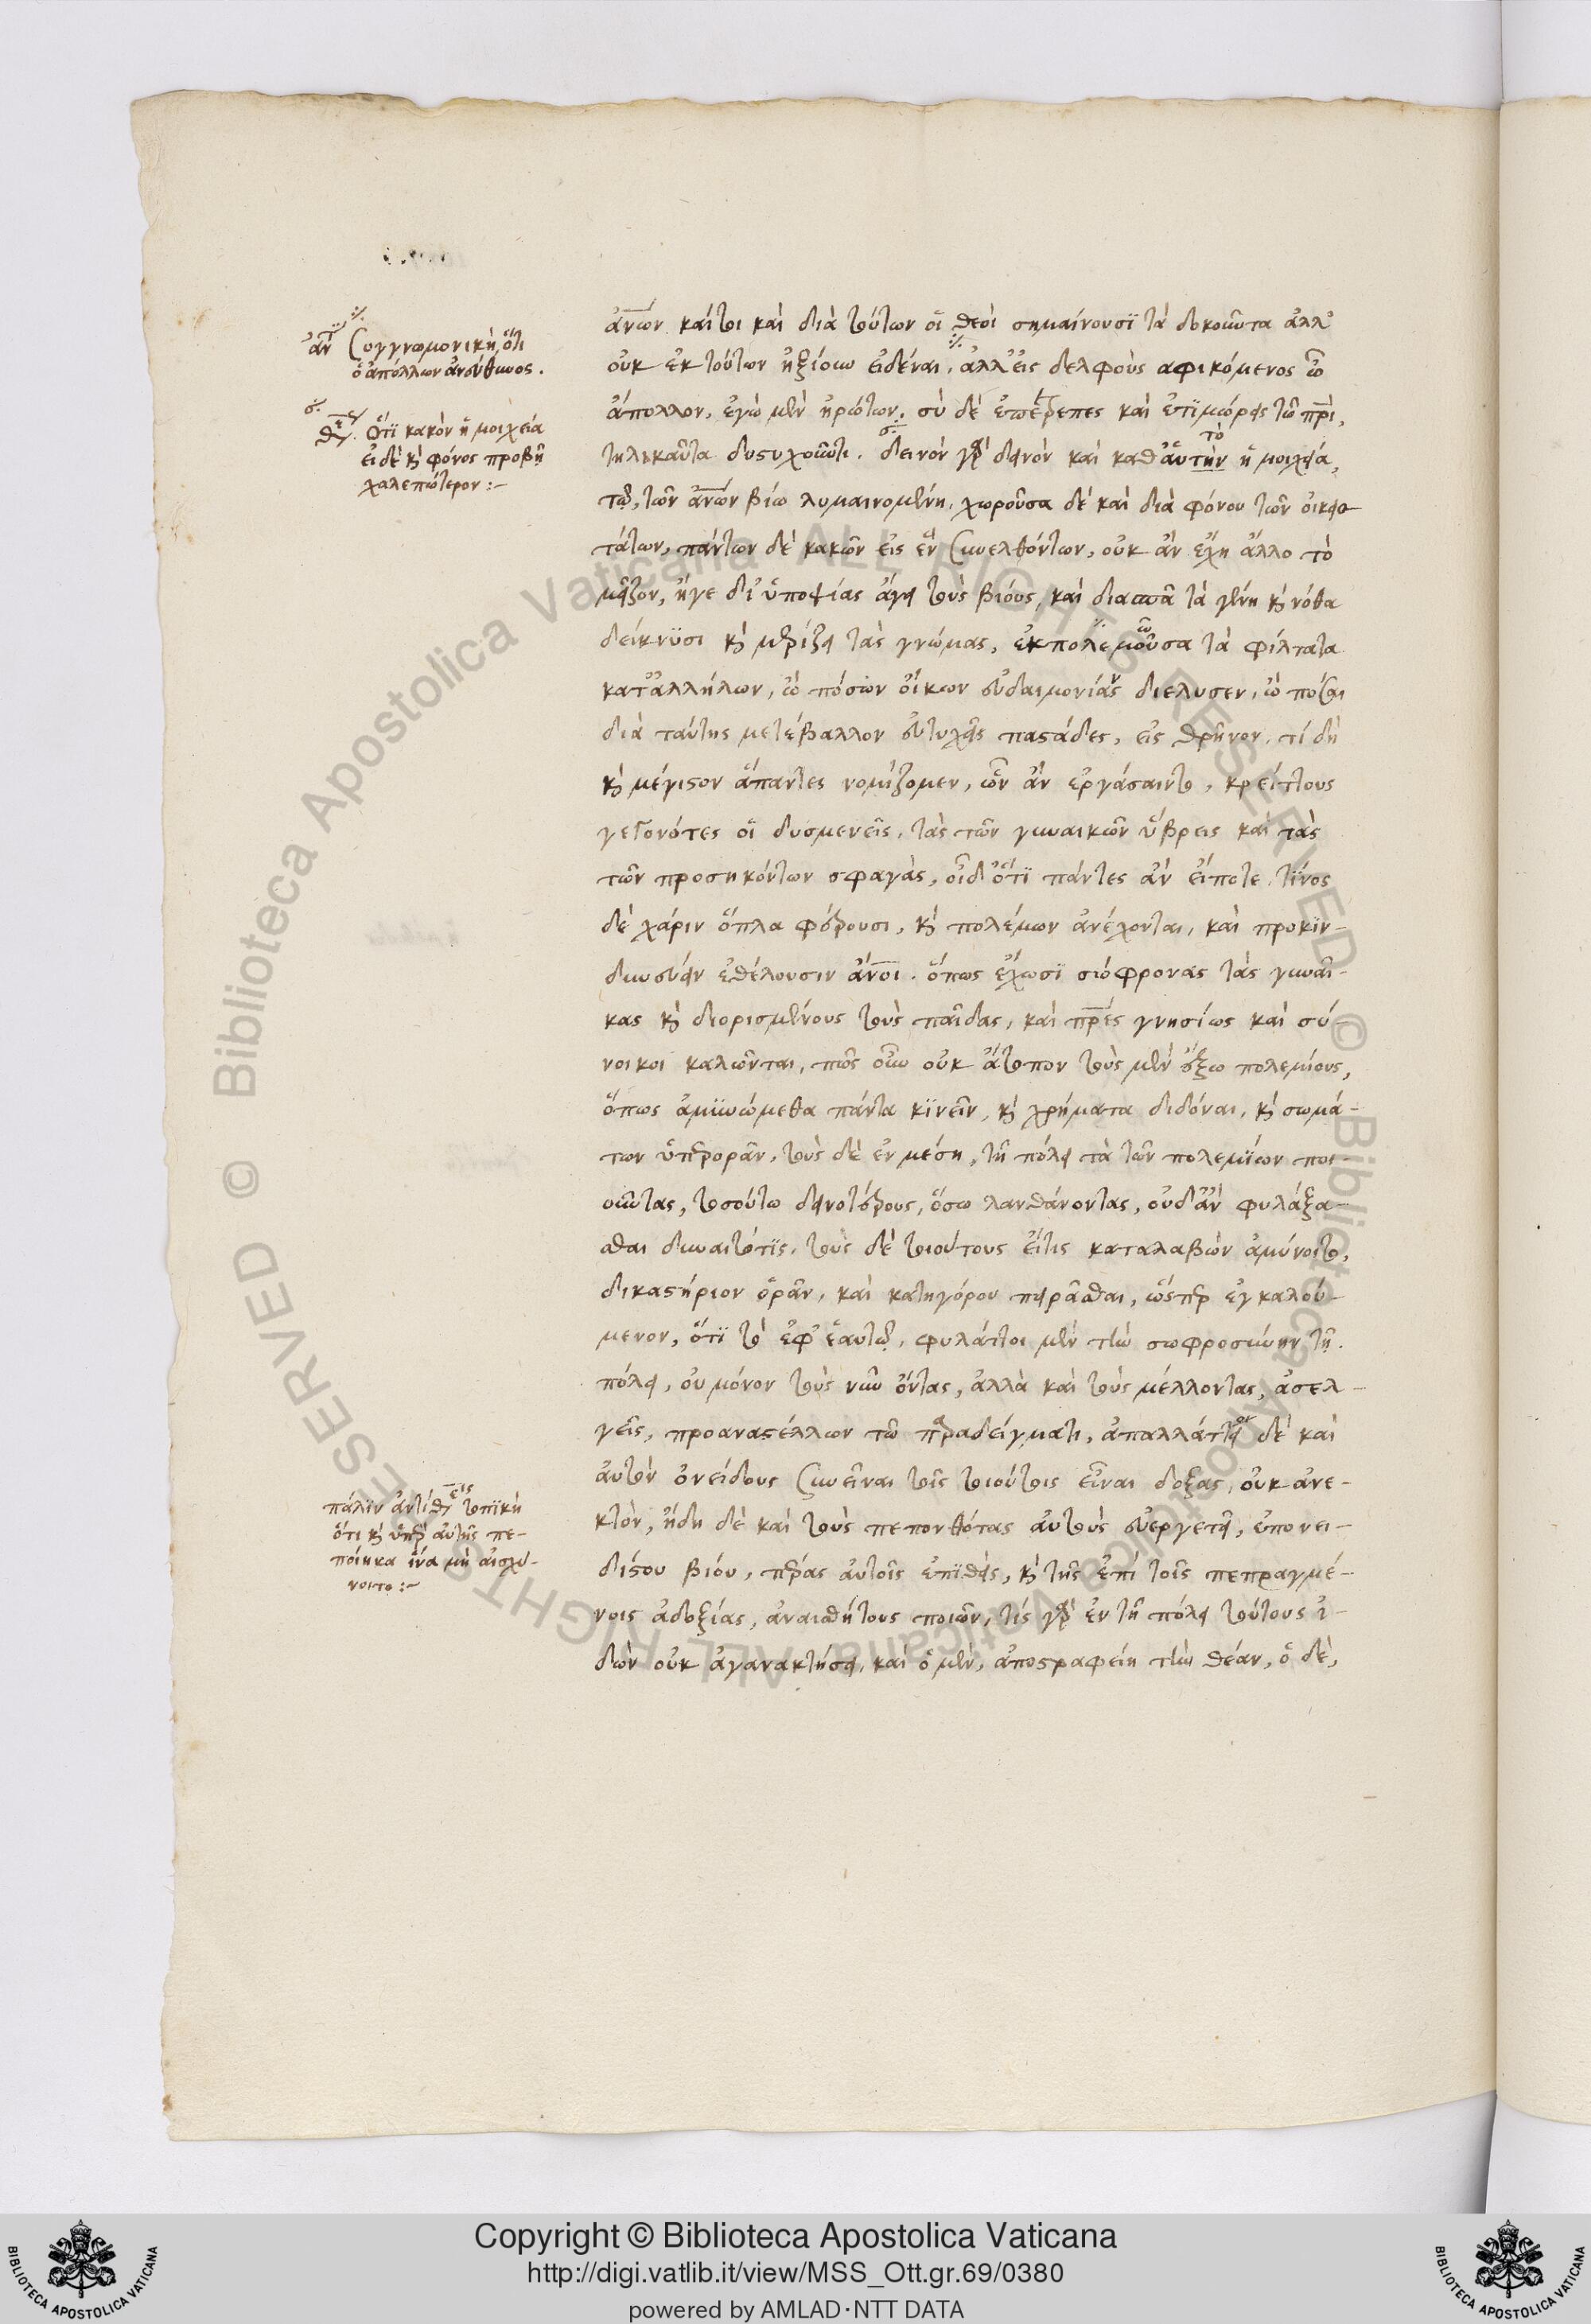 ἀν̅ων καίτοι καὶ διὰ τούτων οἱ θεοὶ σημαίνουσϊ τὰ δοκοῦντα ἀλλ᾽
οὐκ ἐκ τούτων ἠξίουν εἰδέναι, ἀλλ᾽ εἰς δελφοὺς αφικόμενος ὦ
ἄπολλον, ἐγὼ μὲν ἠρώτων, σὺ δὲ ἐπέτρεπες καὶ ἐτϊμώρεις τῶ πρ̅ι,
τηλικαῦτα δυστυχοῦντι. δεινὸν γὰρ δεινὸν καὶ καθ᾽ αὑτὴν ἡ μοιχεία,
τὸ
τῶ, τῶν ἀν̅ων βίω λυμαινομένη, χωροῦσα δὲ καὶ διὰ φόνου τῶν οἰκειο
τάτων, πάντων δὲ κακῶν εἰς ἓν συνελθόντων, οὐκ ἂν ἔχη ἄλλο τὸ
μεῖζον, ἥγε δι᾽ ὑποψίας ἄγει τοὺς βιόυς, καὶ διασπᾶ τὰ γένη κὶ νόθα
δείκνϋσι κὶ μερίζει τὰς γνώμας, ἐκπολεμοῦσα τὰ φίλτατα
κατ᾽ ἀλλήλων, ὢ πόσων οἴκων εὐδαιμονίας διέλυσεν, ὢ πόσαι
διὰ ταύτης μετέβαλλον εὐτυχεῖς παστάδες, εἰς θρῆνον, τί δὴ
κὶ μέγιστον ἅπαντες νομίζομεν, ὧν ἂν ἐργάσαιντο, κρείττους
γεγονότες οἱ δυσμενεῖς, τὰς τῶν γυναικῶν ὕβρεις καὶ τὰς
τῶν προσηκόντων σφαγὰς, οἶδ᾽ ὅτϊ πάντες ἂν εἴποτε, τίνος
δὲ χάριν ὅπλα φέρουσι, κὶ πολέμων ἀνέχονται, καὶ προκϊν-
δυνεύειν ἐθέλουσιν ἄν̅οι. ὅπως ἔχωσϊ σώφρονας τὰς γυναῖ-
κας κὶ διορισμένους τοὺς παῖδας, καὶ πρ̅ες γνησίως καὶ σύ-
νοικοι καλῶνται, πῶς οὖν οὐκ ἄτοπον τοὺς μὲν ἔξω πολεμίους,
ὅπως ἀμϋνώμεθα πάντα κϊνεῖν, κὶ χρήματα διδόναι, κὶ σωμά-
των ὑπερορᾶν, τοὺς δὲ ἐν μέση, τῆ πόλει τὰ τῶν πολεμίων ποι-
οῦντας, τοσούτω δεινοτέρους, ὅσω λανθάνοντας, οὐδ᾽ ἂν φυλάξα-
σθαι δύναιτό τϊς, τοὺς δὲ τοιούτους εἴτις καταλαβὼν ἀμύνοιτο,
δικαστήριον ὁρᾶν, καὶ κατηγόρου πειρᾶσθαι, ὥσπερ ἐγκαλού-
μενον, ὅτϊ τὸ ἐφ᾽ ἑαυτῶ, φυλάττοι μὲν τὴν σωφροσύνην τῆ
πόλει, ου μόνον τοὺς νῦν ὄντας, ἀλλὰ καὶ τοὺς μέλλοντας, ἀσελ-
γεῖς, προαναστέλλων τῶ παραδείγματι, ἀπαλλάττειν δὲ καὶ
ἀυτὸν ὀνείδους συνεῖναι τοῖς τοιούτοις εἶναι δοξας, οὐκ ἀνε-
κτὸν, ἤδη δὲ καὶ τοὺς πεπονθότας ἀυτοὺς εὐεργετεῖ, ἐπονει-
δίστου βιόυ, πέρας ἀυτοῖς ἐπϊθεὶς, κὶ τῆς ἐπὶ τοῖς πεπραγμέ-
νοις ἀδοξίας, ἀναισθήτους ποιῶν, τίς γὰρ ἐν τῆ πόλει τούτους ἰ-
δὼν οὐκ ἀγανακτήσει, καὶ ὁ μὲν, ἀποστραφείη τὴν θέαν, ὁ δὲ,
ἀντ συγγνωμονικὴ, ὅτι
ὁ ἀπόλλων ἀνεύθυνος.
θέσ. Ὅτϊ κακὸν ἡ μοιχεία
εἰ δὲ κὶ φόνος προβῆ
χαλεπώτερον :-
πάλϊν ἀντίθεσις τοπϊκὴ
ὅτι κὶ ὑπὲρ ἀυτῆς πε-
πόιηκα ἵνα μὴ ἀισχύ-
νοιτο :-
Copyright © Biblioteca Apostolica Vaticana
http://digi.vatlib.it/view/MSS_Ott.gr.69/0380
powered by AMLAD·NTT DATA
BIBLIOTECA APOSTOLICA VATICANA
BIBLIOTECA APOSTOLICA VATICANA
© Biblioteca Apostolica Vaticana ALL RIGHTS RESERVED © Biblioteca Apostolica Vaticana ALL RIGHTS RESERVED